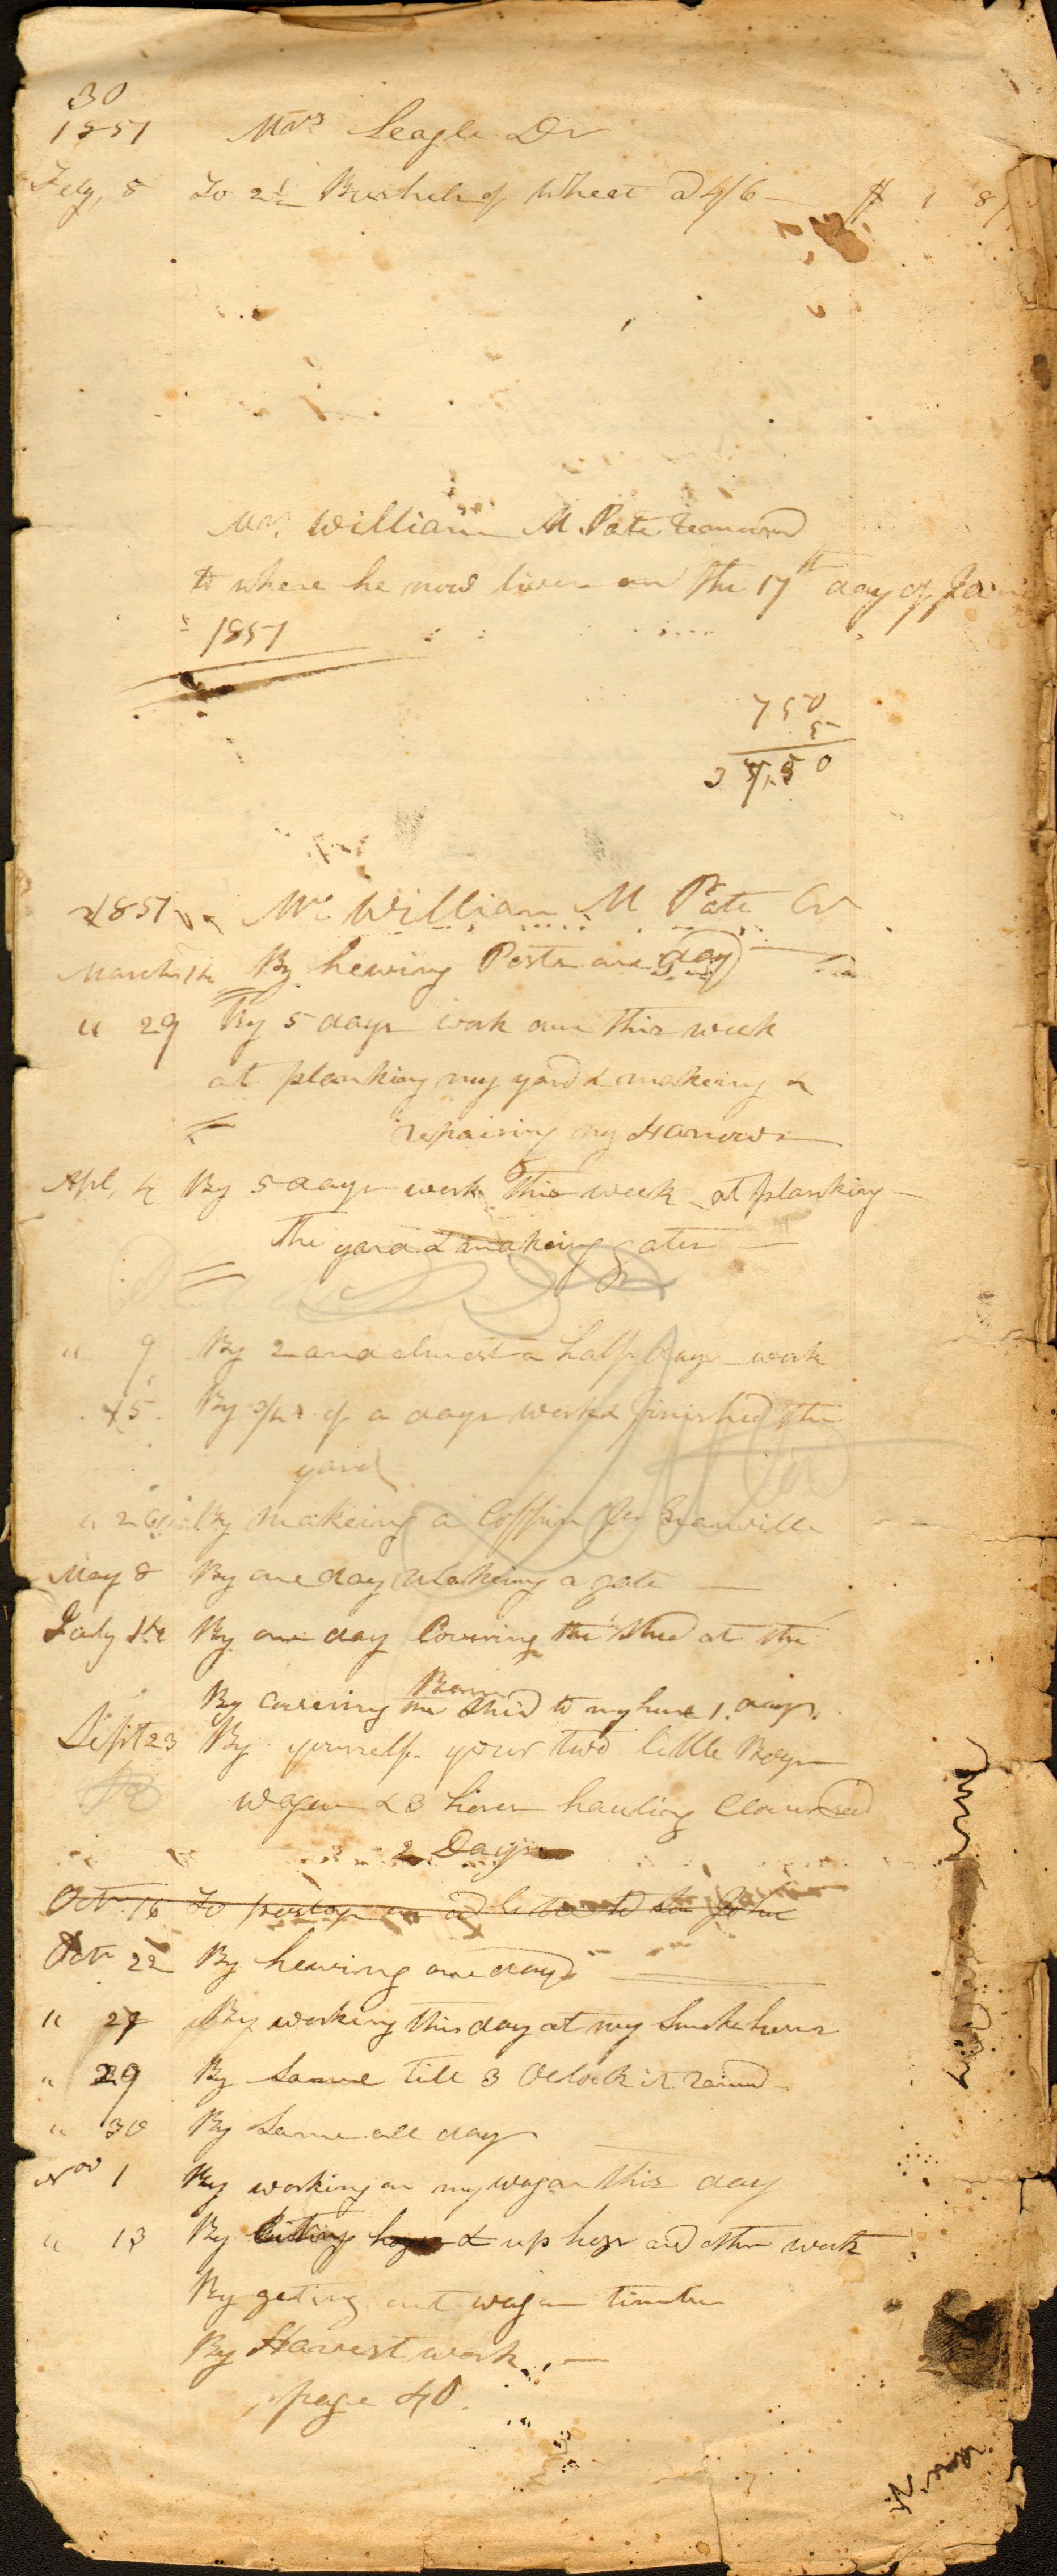 30
1851 Mrs Seagle Dr
Feby, 8 To 2½ Bushels of Wheat @ 4/6 — $ 1 8
Mr. William M. Pate removed
to where he now lives on the 17th day of
1851
750
5
3750
1851 Mr William M Pate Cr
March 14 By hewing Posts one day
" 29 By 5 days work on this week
at planking my yard & makeing &
repairing my Harrows
Apl, 4 By 5 days work this week at planking
the yard & makeing gates
" 9 By 2 and almost a half days work
15 By of a days work & finished the
yard
" 26 By makeing a Coffin for Granville
May 8 By one day makeing a gate
July By one day Covering the Shed at the
Barn
By covering the Shed to my 1. days.
Sept 23 By yourself your two little Boys
wagon & 3 horses hauling Cloverseed
2 Days
Oct 16 To postage on
Octr 22 By hewing one day
" 27 By working this day at my Smokehouse
" 29 By Same till 3 Oclock it rained
" 30 By Same all day
Nov 1 By working on my wagon this day
" 13 By & up hogs and other work
By geting out wagon timber
By Harvest work
page 40